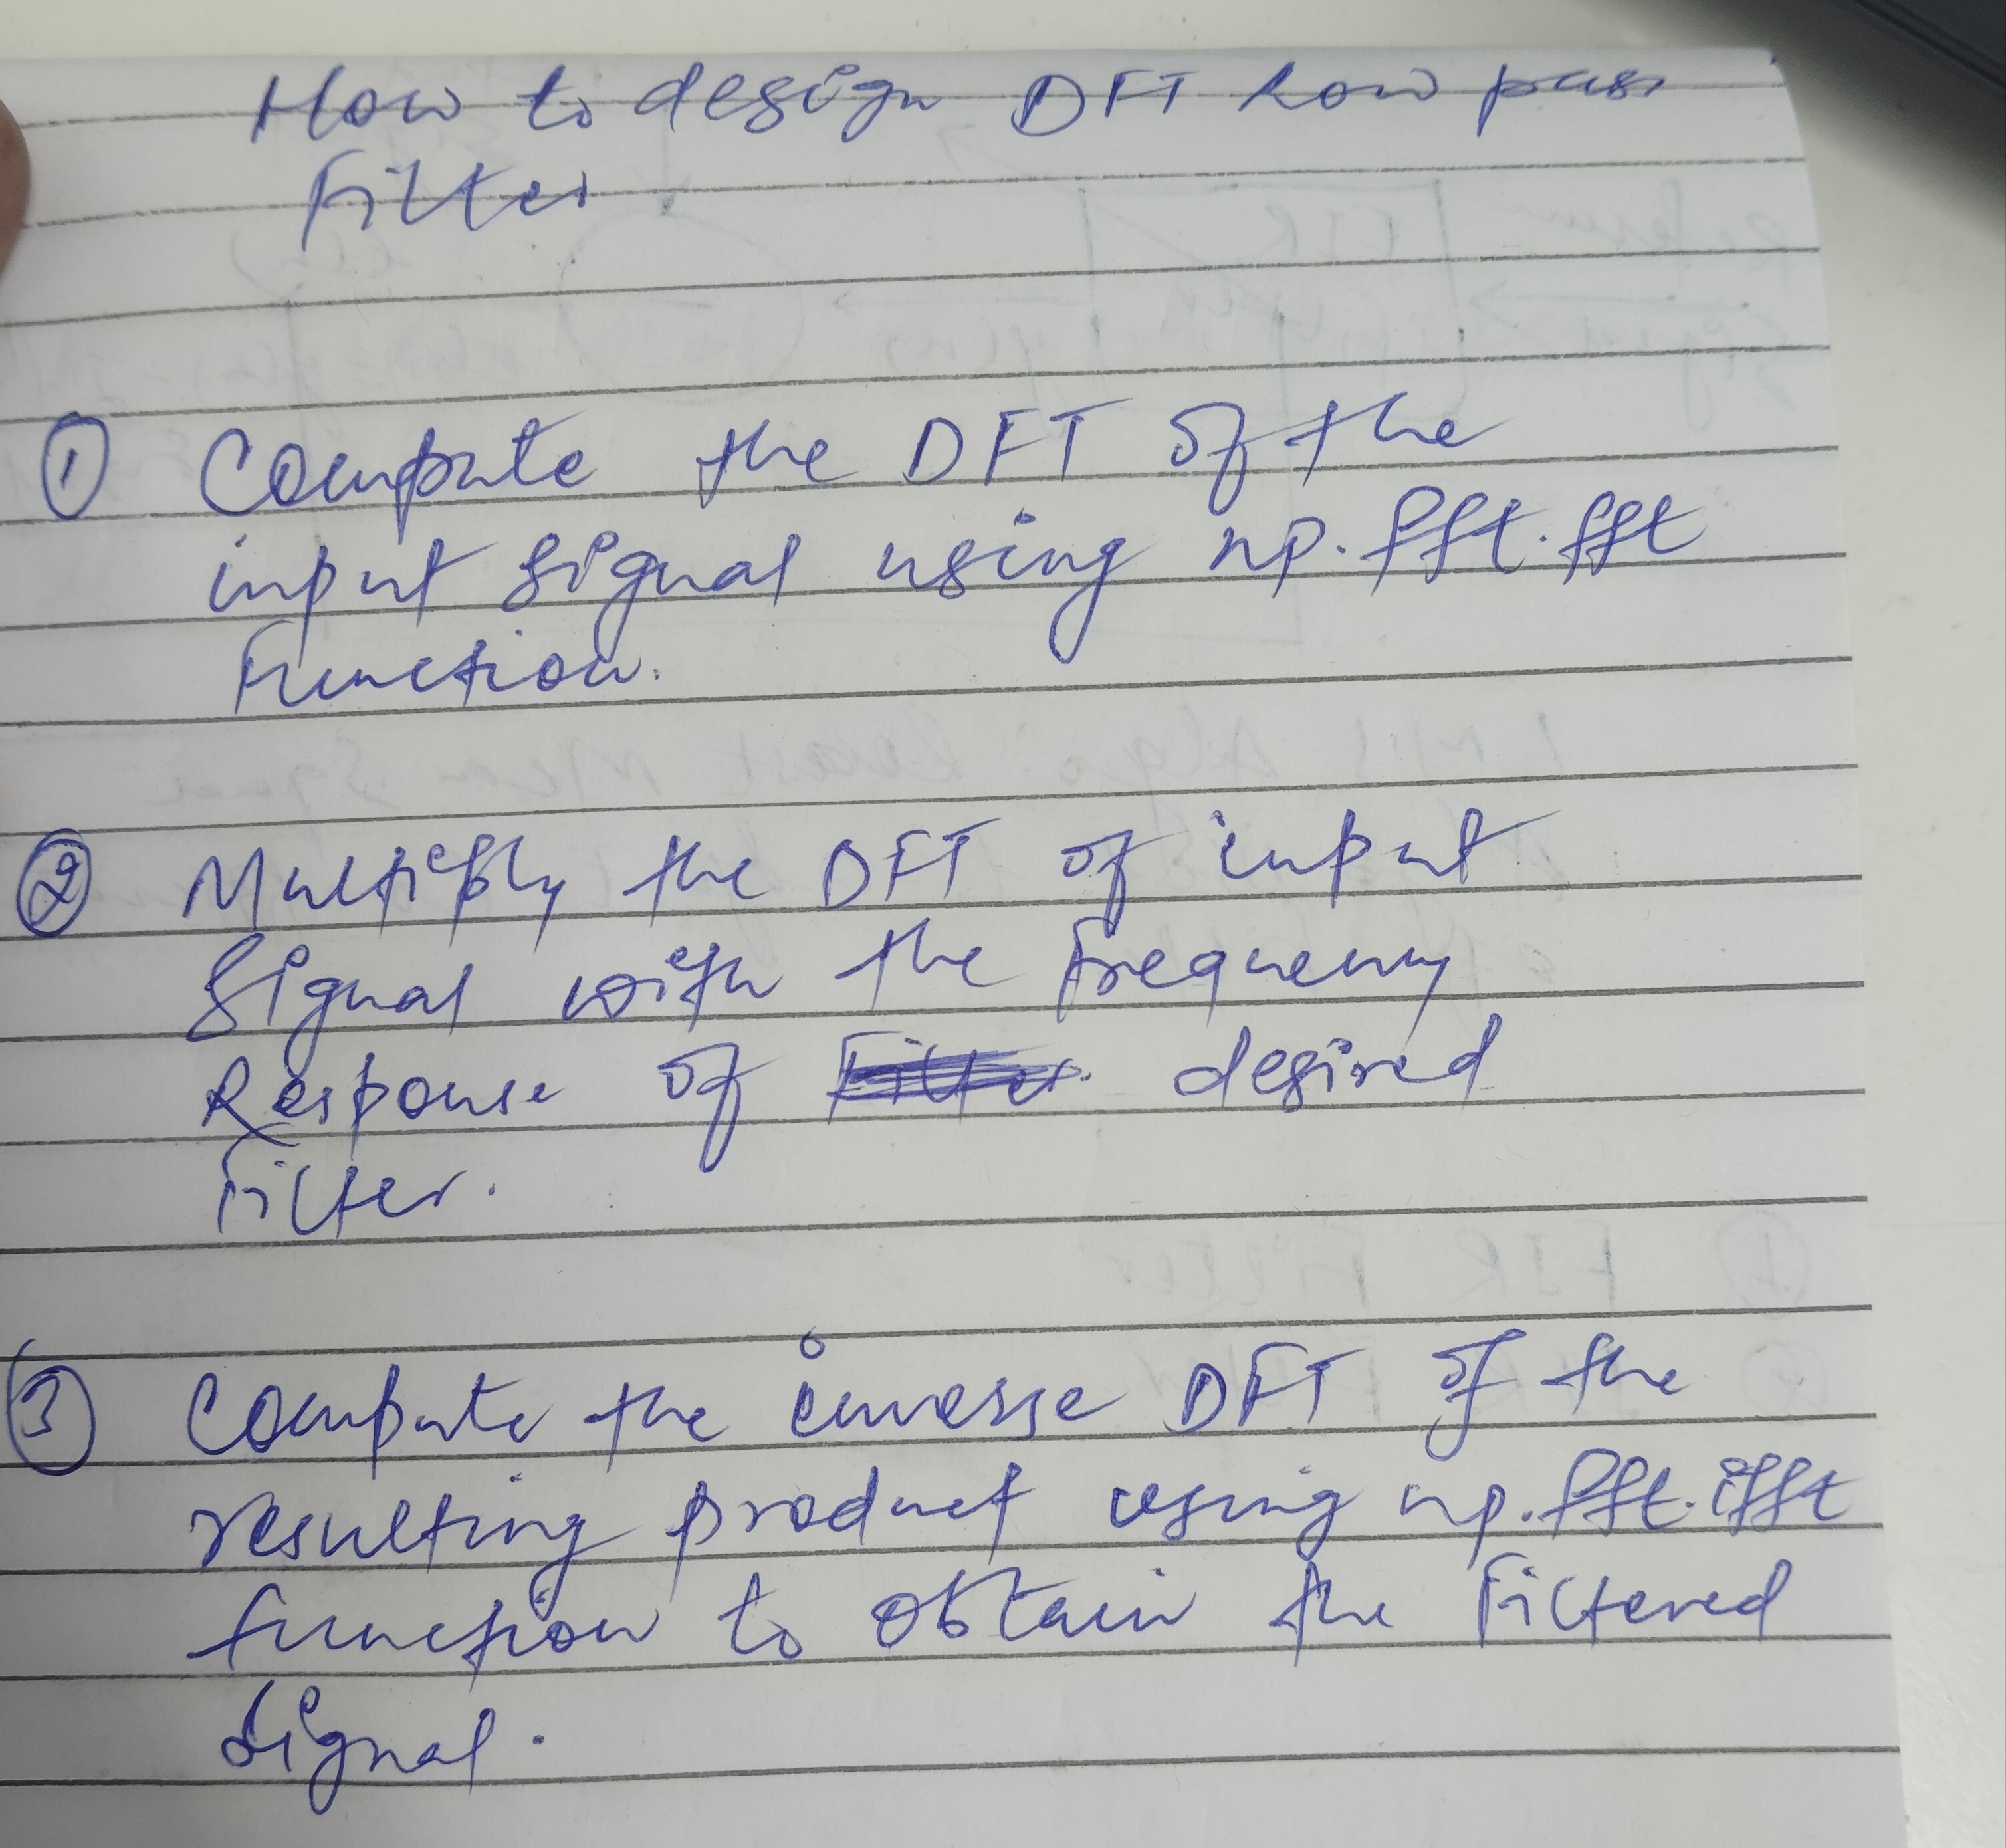 How to design DFT Low pass
Filter
① Compute the DFT of the
input signal using np.fft.fft
Function.
② Multiply the DFT of input
Signal with the Frequency
Response of Filter desired
Filter.
③ Compute the inverse DFT of the
resulting product using np.fft.ifft
function to obtain the Filtered
signal.